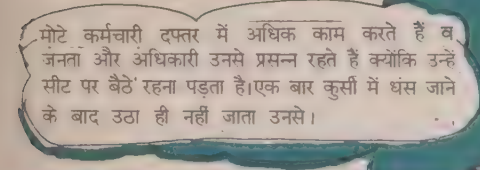 मोटे कर्मचारी दफ्तर में अधिक काम करते हैं व
जनता और अधिकारी उनसे प्रसन्न रहते हैं क्योंकि उन्हें
सीट पर बैठे रहना पड़ता है।एक बार कुर्सी में धंस जाने
के बाद उठा ही नहीं जाता उनसे।